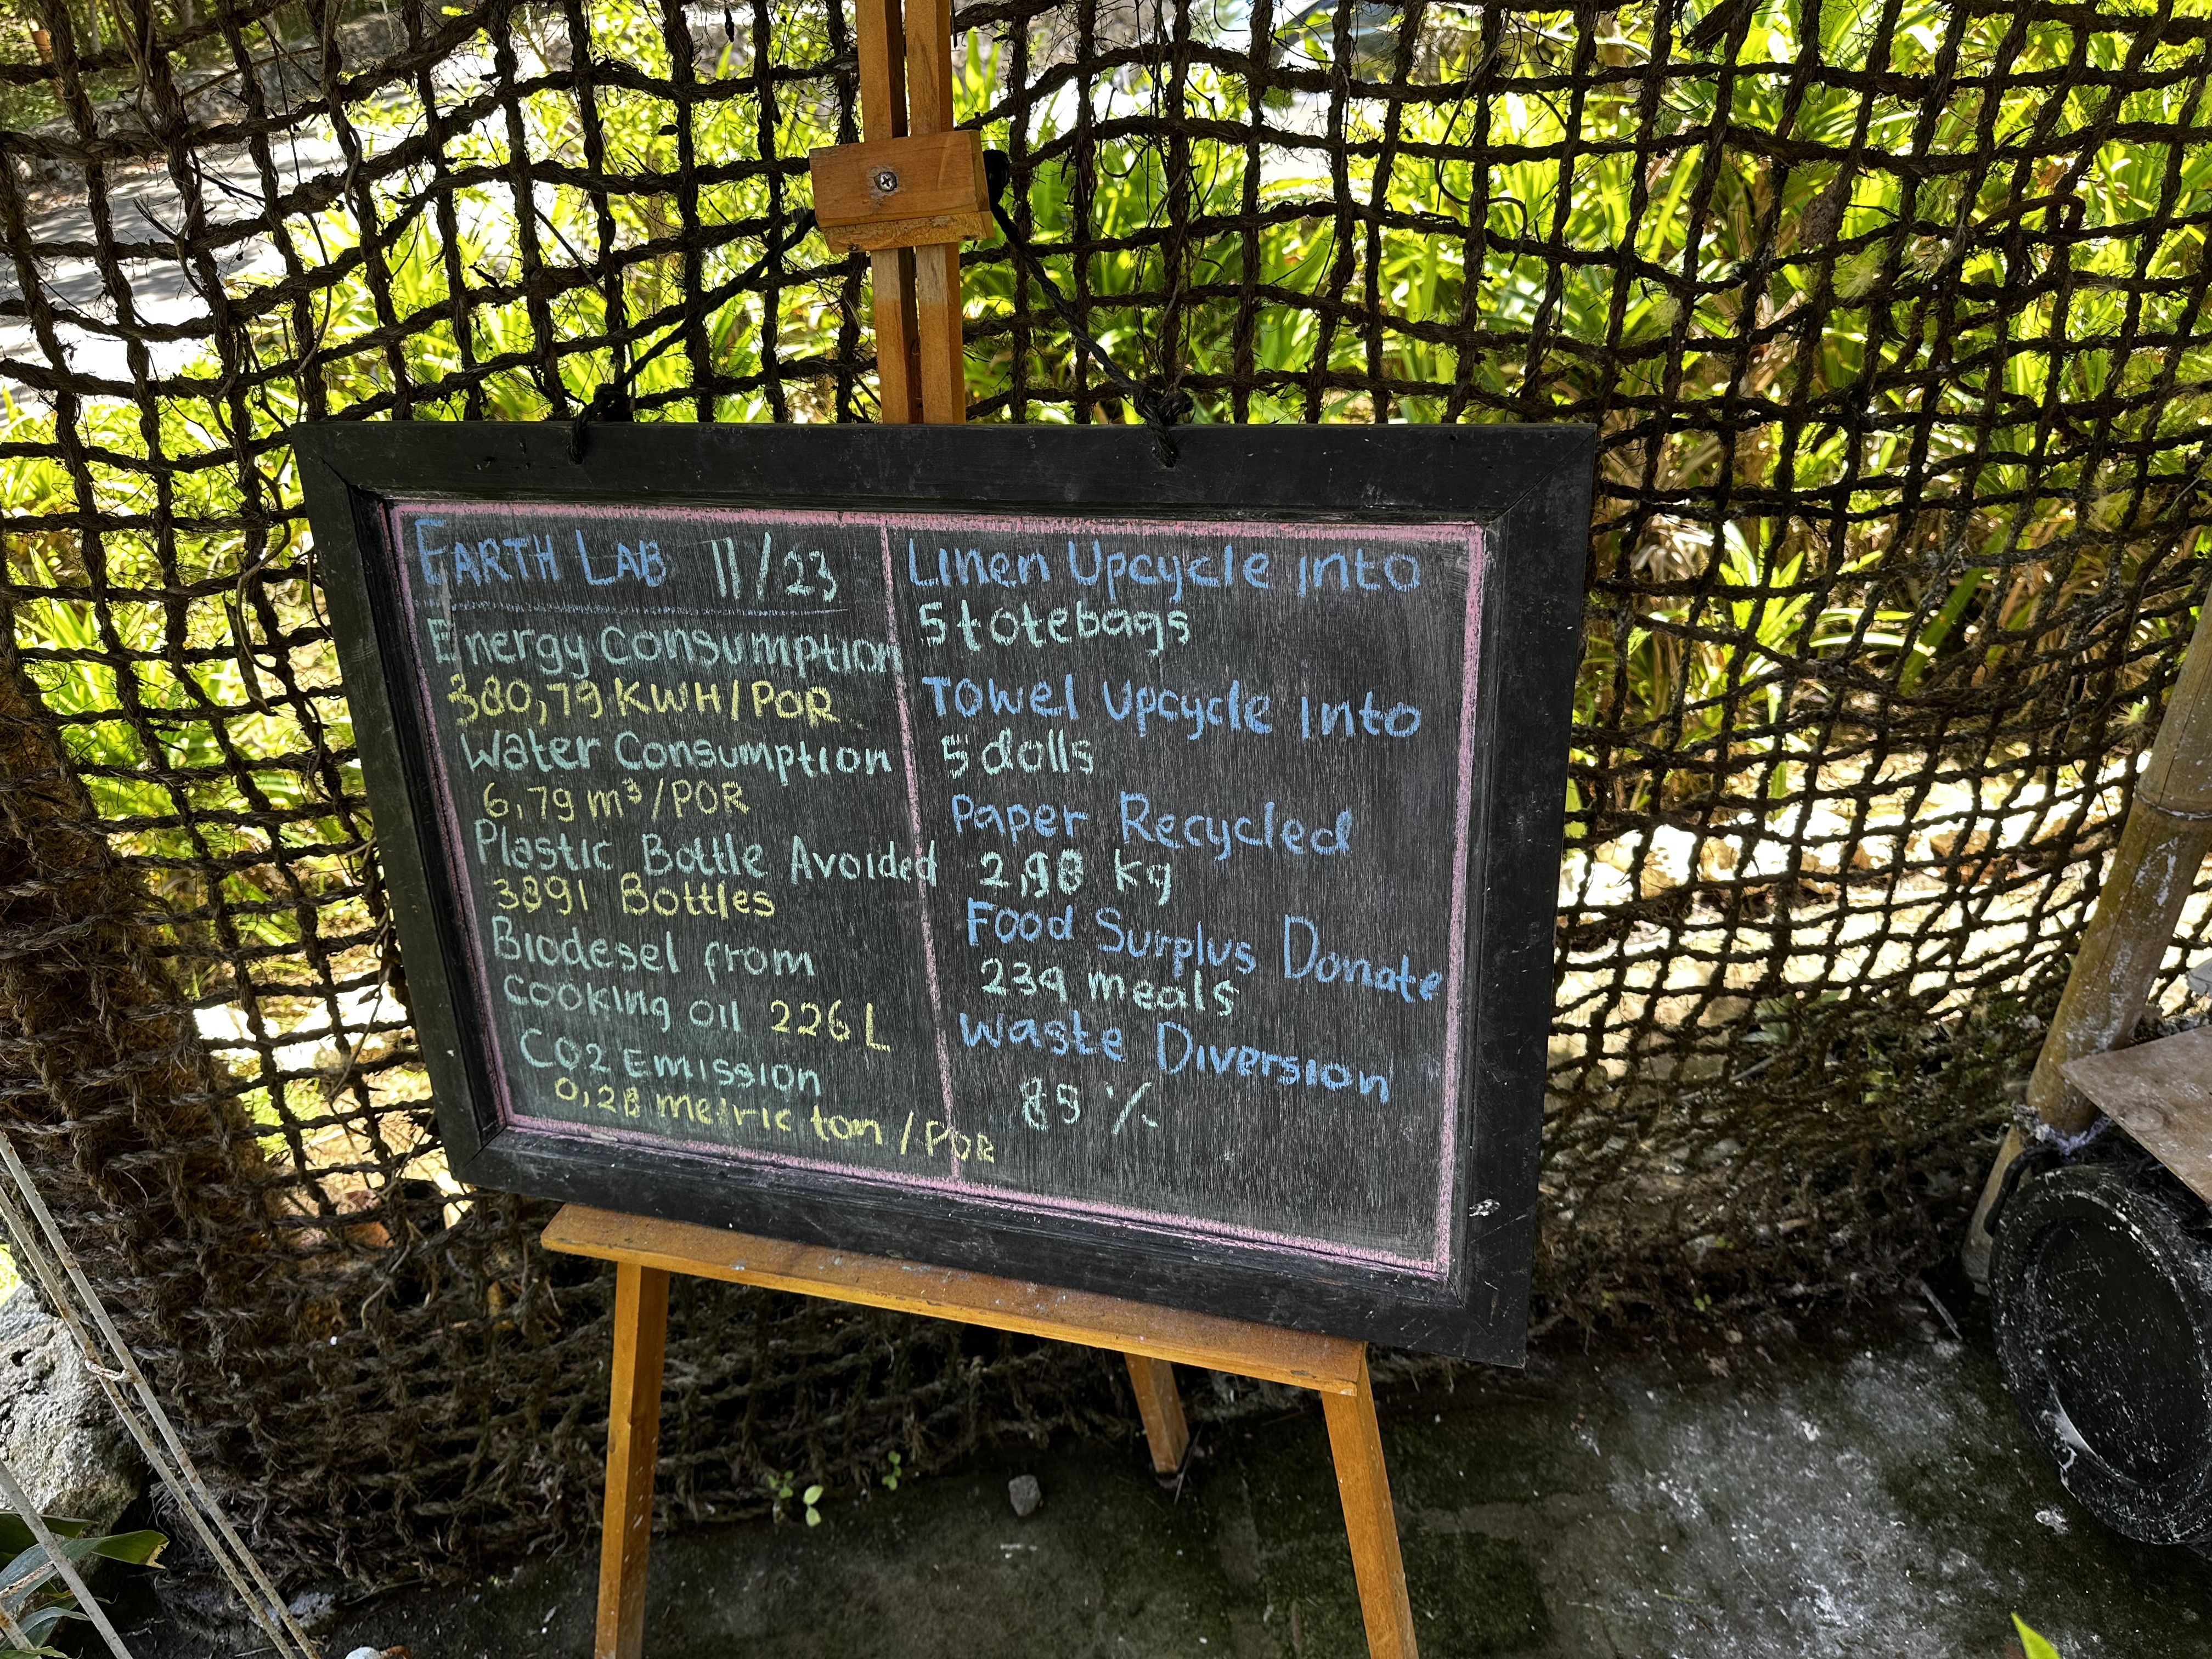 EARTH LAB 11/23
Energy Consumption
380,79 KWH/POR
Water Consumption
6,79 m³/POR
Plastic Bottle Avoided
3891 Bottles
Biodesel from
cooking oil 226 L
CO2 Emission
0,28 metric ton/POR
Linen Upcycle Into
5 totebags
Towel Upcycle Into
5 dolls
Paper Recycled
2,98 kg
Food Surplus Donate
234 meals
Waste Diversion
89 %